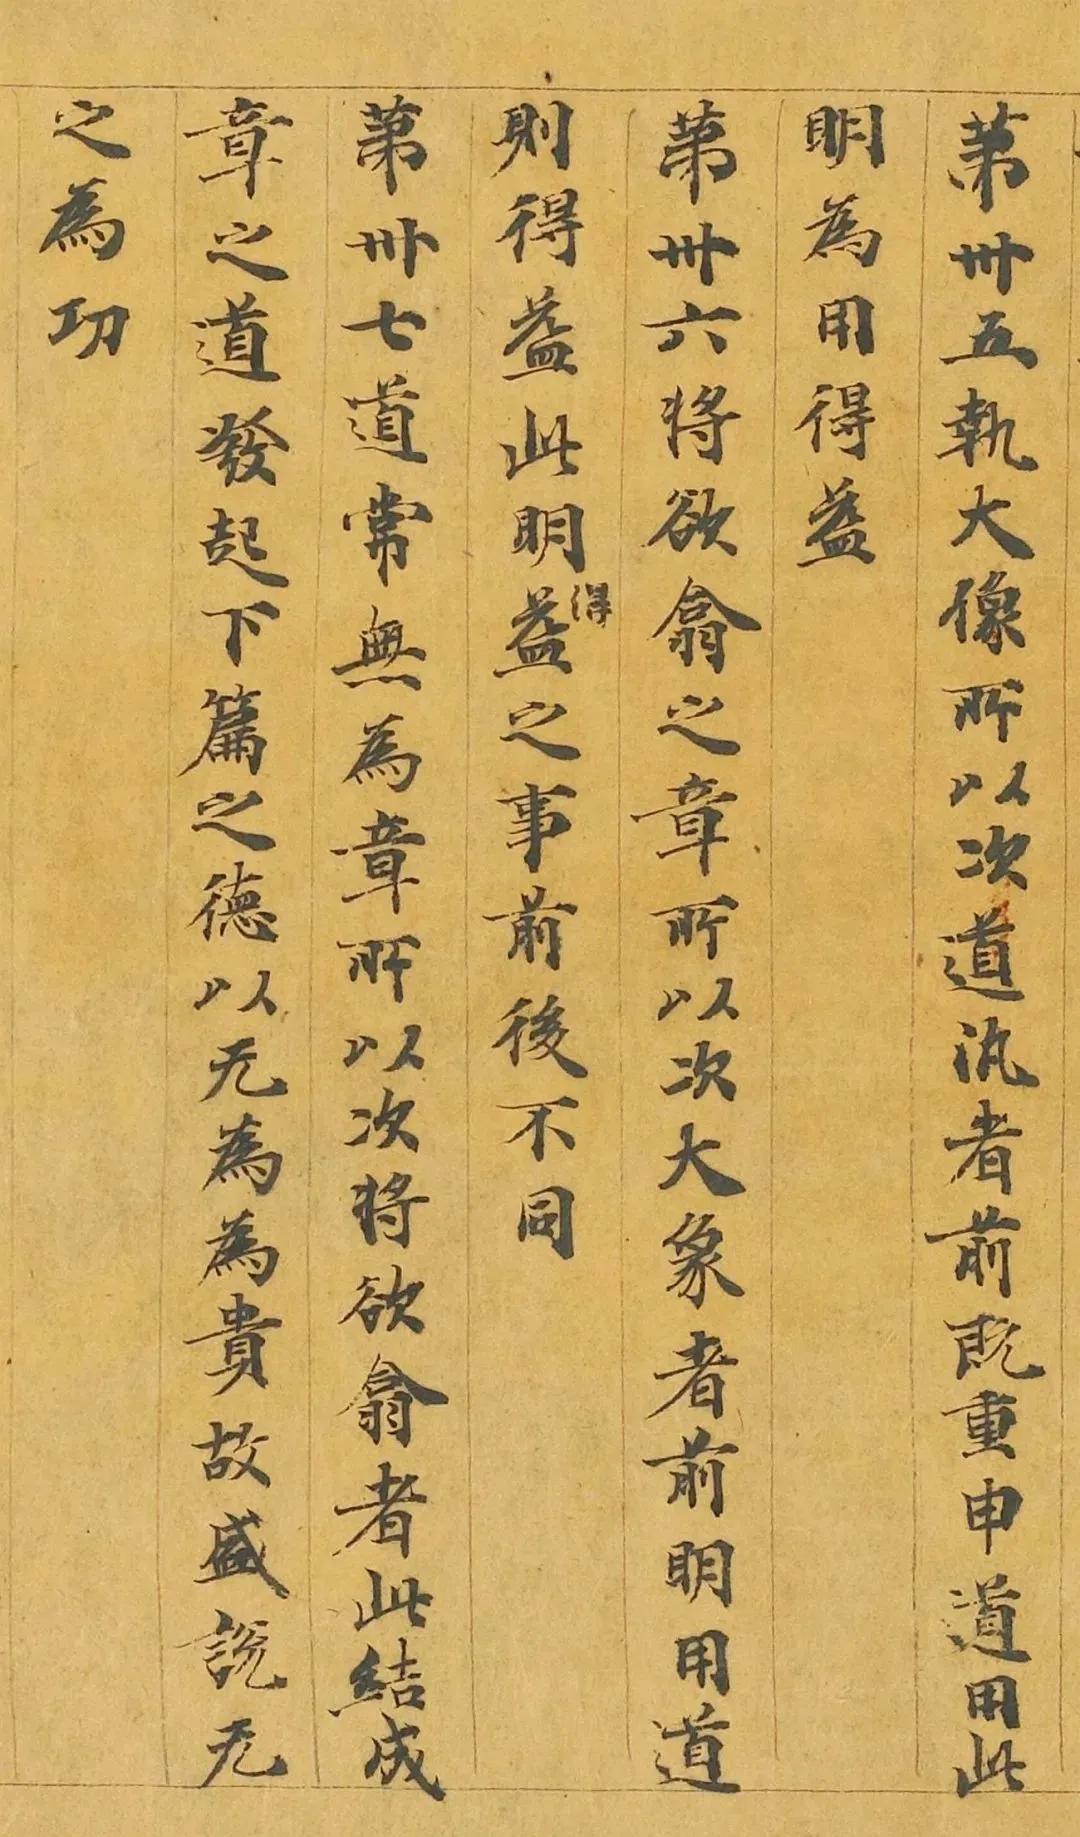 第卅五執大像所以次道汎者前既重申道用此
明為用得益
第卅六將欲翕之章所以次大象者前明用道
則得益此明益得之事前後不同
第卅七道常無為章所以次將欲翕者此結成
章之道發起下篇之德以无為為貴故盛說无
之為功